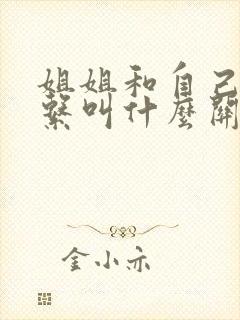 姐姐和自己
繫叫什麼關
金小亦